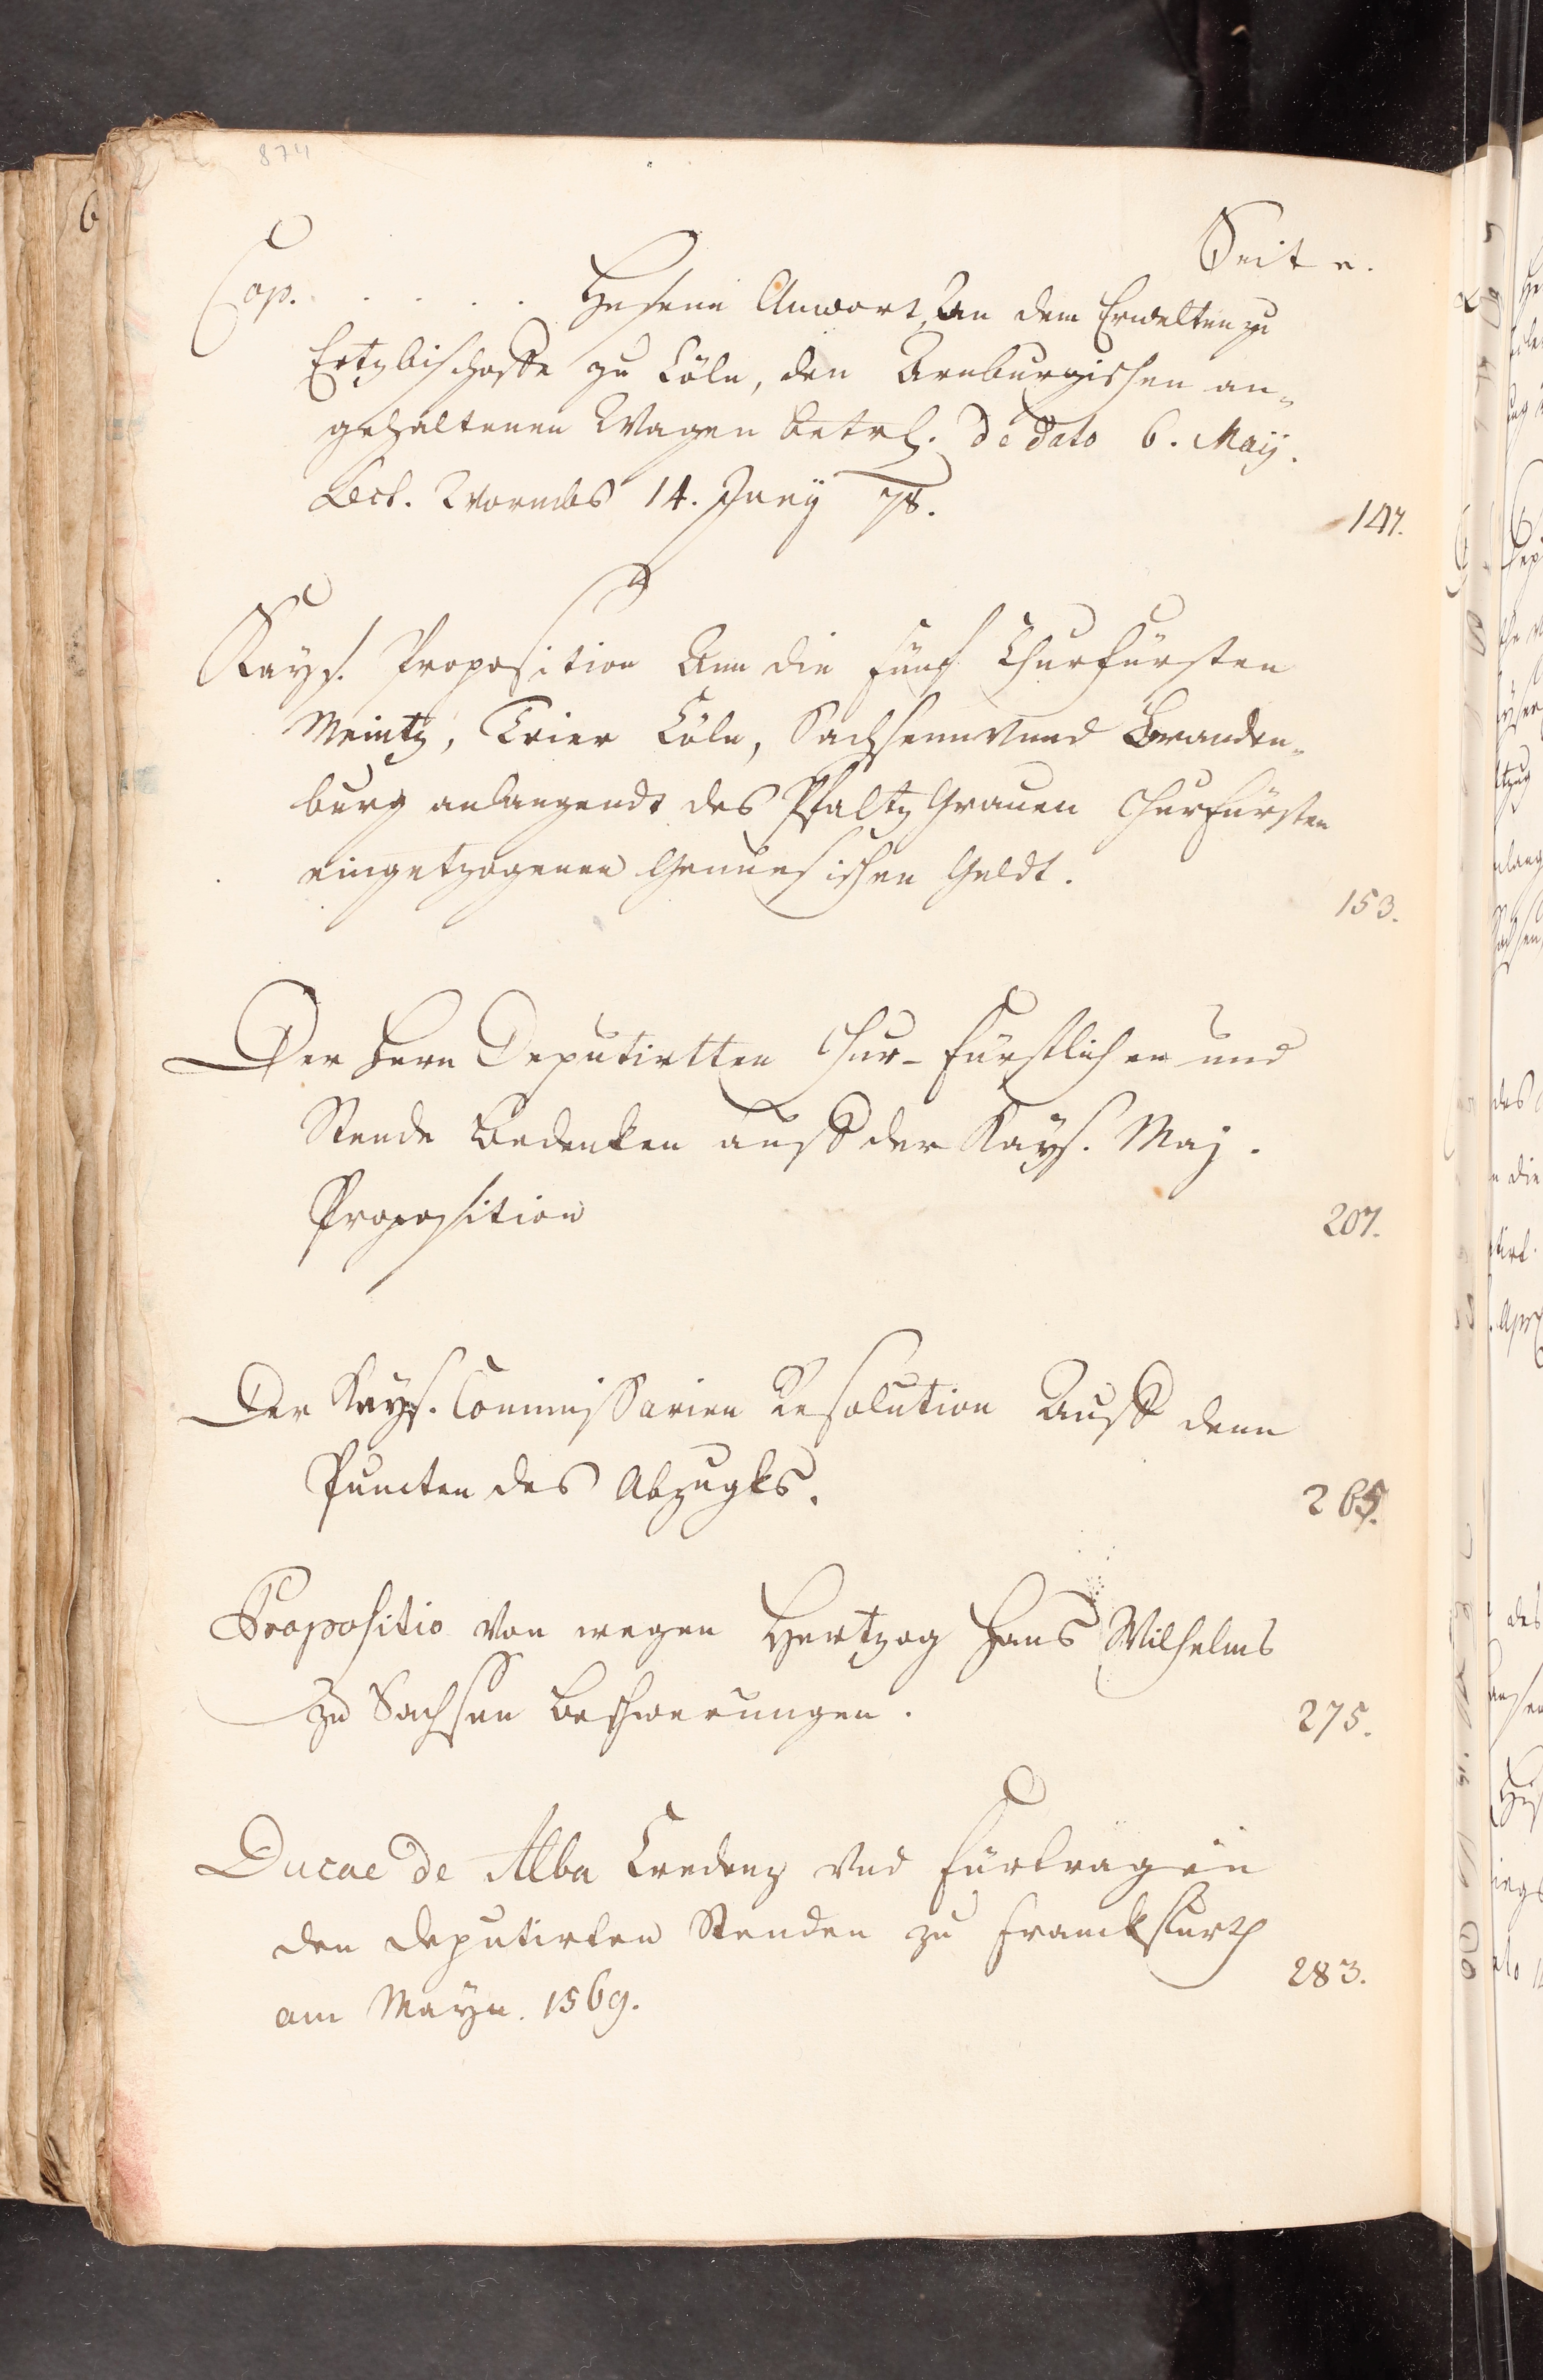 874
Seite.
Cop. . . . . . Hessens Anwort, An dem Erwelten zu
Ertzbischoffe zu Cöln, den Arnburgischen an-
gehaltenen Wagen betrf. de dato 6. Maÿ.
Lect. Wormbs 14. Junÿ 78.
147.
Kays. Proposition Ann die fünf Churfürsten
Meintz, Trier Cöln, Sachsenn vnnd Branden-
burg anlangendt des Pfaltz Grauen Churfürsten
eingetzogenen Genuesischen Geldt.
153.
Der Herrn Deputirtten Chur-Fürstlichen und
Stende Bedenken auff der Kays. Maj.
Proposition
207.
Der Kays. Commissarien Resolution Auff denn
Puncten des Abzugks.
265.
Propositio von wegen Hertzog Hans Wilhelms
zu Sachsen Beschwerungen.
275.
Ducae de Alba Credenz vnd fürtragen
den deputirten Stenden zu Franckfurth
am Mayn. 1569.
283.